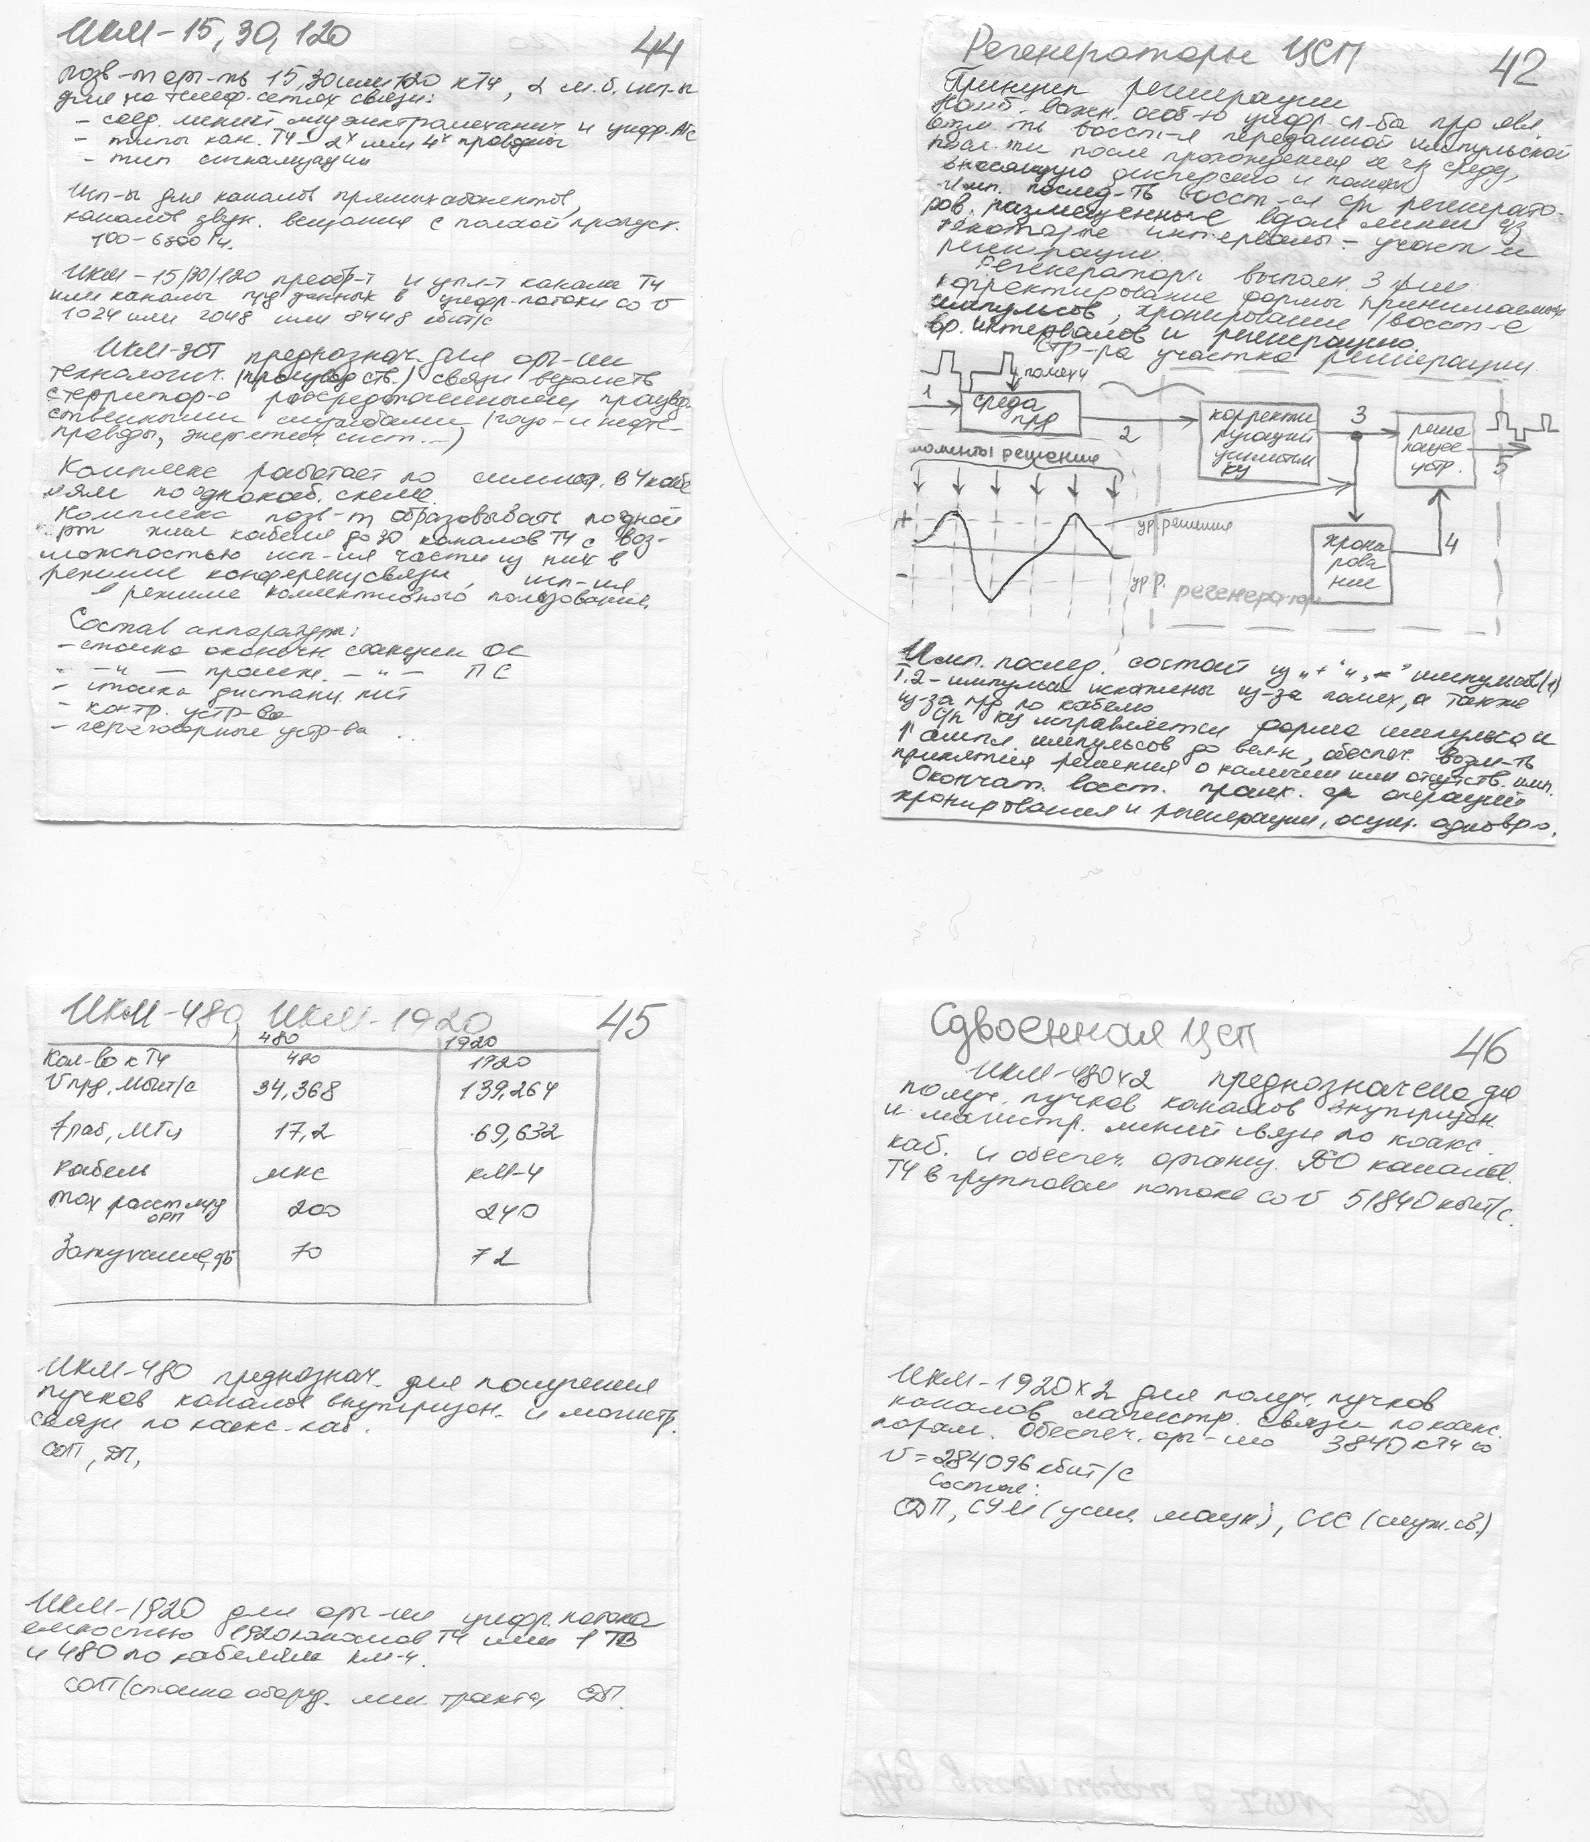 ИКМ-15, 30, 120
44
позв-т орг-ть 15, 30 или 120 кТЧ, м.б. исп-ы
для на телеф. сетях связи:
- соед. линий м/у электромеханич. и цифр. АТС
- типы кан. ТЧ - 2х или 4х проводны
- тип сигнализации
Исп-ы для каналов прямых абонентов,
каналов звук. вещания с полосой пропуск.
100-6300 Гц.
ИКМ-15/30/120 преобр-т и упл-т каналы ТЧ
или каналы прд данных в цифр. потоки со v
1024 или 2048 или 8448 кбит/с
ИКМ-30Т предназнач. для орг-ции
технологич. (производств.) связи ведомств
с территор-о рассредоточенными производ-
ственными службами (газо- и нефте-
проводы, энергетич. сист...)
Комплекс работает по симметр. в 4 кабе
лям по однокаб. схеме.
Комплекс позв-т образовывать по одной
жил кабеля до 30 каналов ТЧ с воз-
можностью исп-ия части из них в
режиме конференцсвязи, исп-ия
в режиме коллективного пользования.
Состав аппаратуры:
- стойка оконечн. станции ОС
- -"- промеж. -"- ПС
- стойка дистанц. пит
- контр. устр-ва
- переговорные устр-ва
Регенераторы ЦСП
42
Принцип регенерации
Наиб. важн. особ-ю цифр. сп-ба прд явл.
возм-ть восст-я переданной импульсной
посл-ти после прохождения ее ч/з среду,
вносящую дисперсию и помехи
Имп. послед-ть восст-ся с/п регенерато-
ров, размещенные вдоль линии ч/з
некоторые интервалы - участки
регенерации.
Регенераторы выполн. 3 ф-ии
корректирование формы принимаемых
импульсов, хронирование (восст-е
вр. интервалов и регенерацию.
Стр-ра участка регенерации
помехи
1
среда
прд
2
корректи
рующий
усилитель
КУ
3
реша
ющее
устр.
5
моменты решения
+
ур. решения
-
ур р.
хрони
рова
ние
4
регенератор
Имп. послед. состоит из „+" и „-" импульсов (1)
Т.2 - импульсы искажены из-за помех, а также
из-за прд по кабелю
С/п КУ исправляется форма импульса и
↑ ампл. импульсов до вел-н, обеспеч. возм-ть
принятия решения о наличии или отсутств. имп.
Окончат. восст. происх. при операций
хронирования и регенерации, осущ. одновр.
ИКМ-480, ИКМ-1920
45
480 1920
Кол-во кТЧ 480 1920
V прд, Мбит/с 34,368 139,264
f раб, МГц 17,2 69,632
Кабель МКС КМ-4
max расст м/у ОРП 200 240
Затухание, дБ 70 72
ИКМ-480 предназнач. для получения
пучков каналов внутризон. и магистр.
связи по коакс. каб.
СОП, ДП,
ИКМ-1920 для орг-ии цифр. потока
емкостью 1920 каналов ТЧ или 1 ТВ
и 480 по кабелям КМ-4.
СОП (стойка оборуд. лин. тракта, СДП.
Сдвоенная ЦСП
46
ИКМ-480х2 предназначена для
получ. пучков каналов внутризон.
и магистр. линий связи по коакс.
каб. и обеспеч. организ. 960 каналов
ТЧ в групповом потоке со v 51840 кбит/с.
ИКМ-1920х2 для получ. пучков
каналов магистр. связи по коакс.
парам. Обеспеч. орг-ию 3840 кТЧ со
v = 284096 кбит/с
Состав:
СДП, СУМ (усил. мощн), ССС (служ. св.)